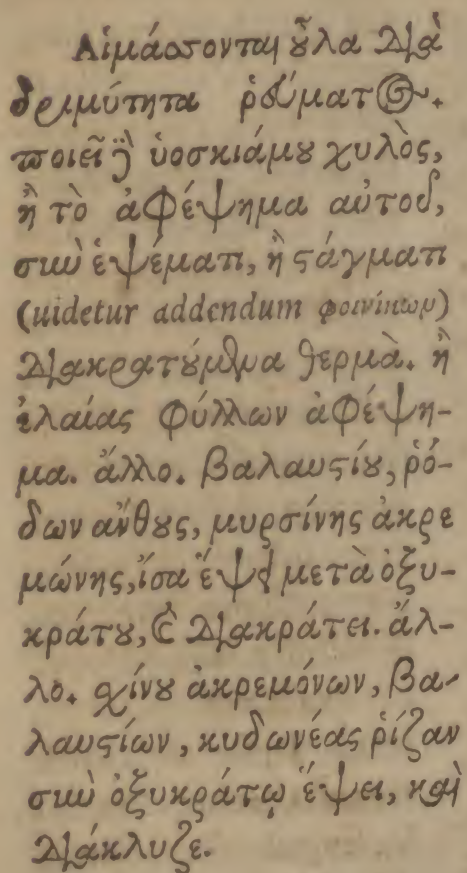 Αἱμάσσονται οὖλα διὰ
δριμύτητα ῥεύματος.
ποιεῖ ὑοσκυάμου χυλὸς,
ἢ τὸ ἀφέψημα αὐτοῦ,
σὺν ἑψέματι, ἢ στάγματι
(uidetur addendum φοινίκων)
διακρατούμενα θερμὰ. ἢ
ἐλαίας φύλλων ἀφέψη-
μα. ἄλλο. βαλαυστίου, ῥό-
δων ἄνθους, μυρσίνης ἀκρε
μώνης, ἴσα ἕψει μετὰ ὀξυ-
κράτου, καὶ διακράτει. ἄλ-
λο. σχίνου ἀκρεμόνων, βα-
λαυστίων, κυδωνέας ῥίζαν
σὺν ὀξυκράτῳ ἕψει, καὶ
διάκλυζε.